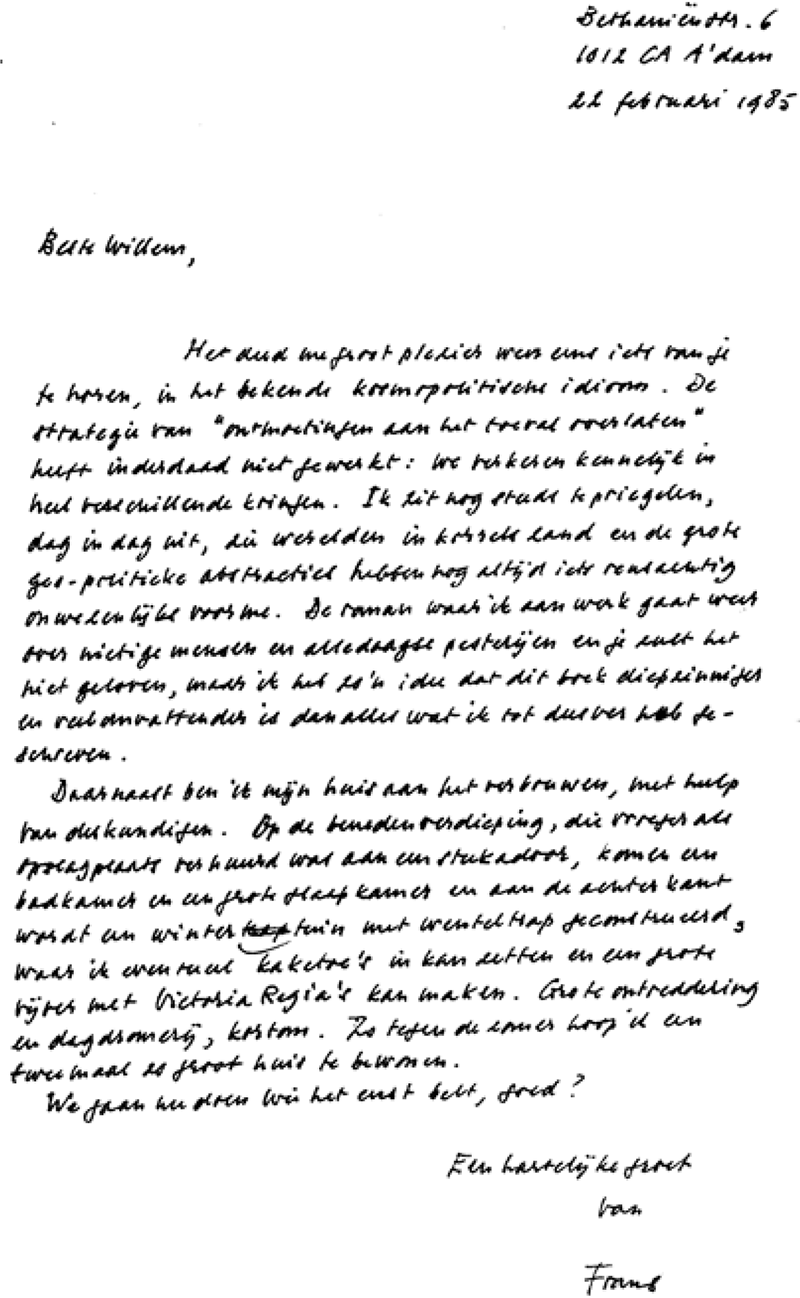 Bethaniënstr. 6
1012 CA A'dam
22 februari 1985
Beste Willem,
Het deed me groot plezier weer eens iets van je
te horen, in het bekende kosmopolitische idioom. De
strategie van "ontmoetingen aan het toeval overlaten"
heeft inderdaad niet gewerkt: we verkeren kennelijk in
heel verschillende kringen. Ik zit nog steeds te priegelen,
dag in dag uit, die werelden in kersseland en de grote
geo-politieke abstracties hebben nog altijd iets reusachtig
onwezenlijks voor me. De roman waar ik aan werk gaat weer
over nietige mensen en alledaagse pesterijen en je zult het
niet geloven, maar ik heb zo'n idee dat dit boek diepzinniger
en veelomvattender is dan alles wat ik tot dusver heb ge-
schreven.
Daarnaast ben ik mijn huis aan het verbouwen, met hulp
van deskundigen. Op de benedenverdieping, die vroeger als
opslagplaats verhuurd was aan een stukadoor, komen een
badkamer en een grote slaapkamer en aan de achterkant
wordt een wintertuin met wenteltrap geconstrueerd,
waar ik eventueel kaketoe's in kan zetten en een grote
vijver met Victoria Regia's kan maken. Grote ontreddering
en dagdromerij, kortom. Zo tegen de zomer hoop ik een
tweemaal zo groot huis te bewonen.
We gaan nu doen wie het eerst belt, goed?
Een hartelijke groet
van
Frans